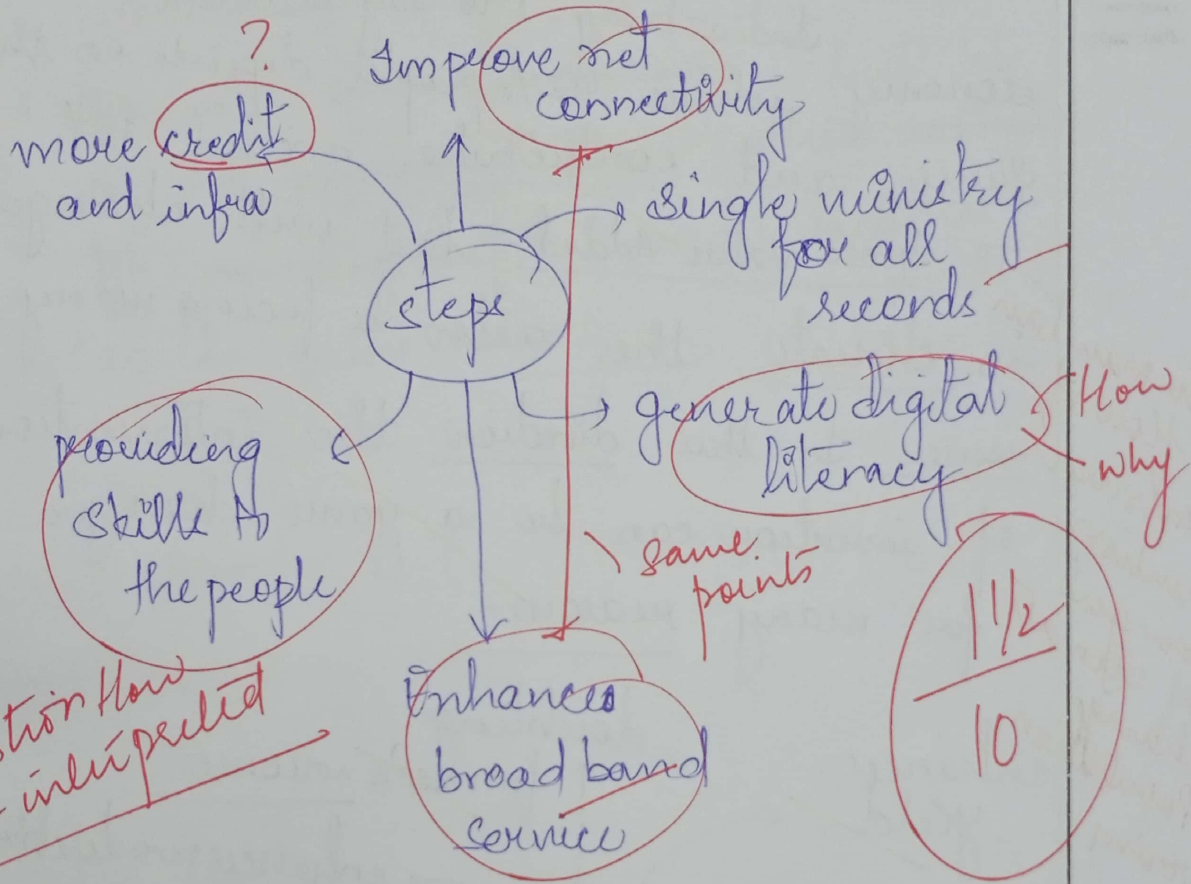 ?
Improve net
connectivity
more credit
and infra
single ministry
for all
records
steps
generate digital
literacy
How
why
providing
skills to
the people
same
points
1 1/2
10
How
Enhance
broad band
service